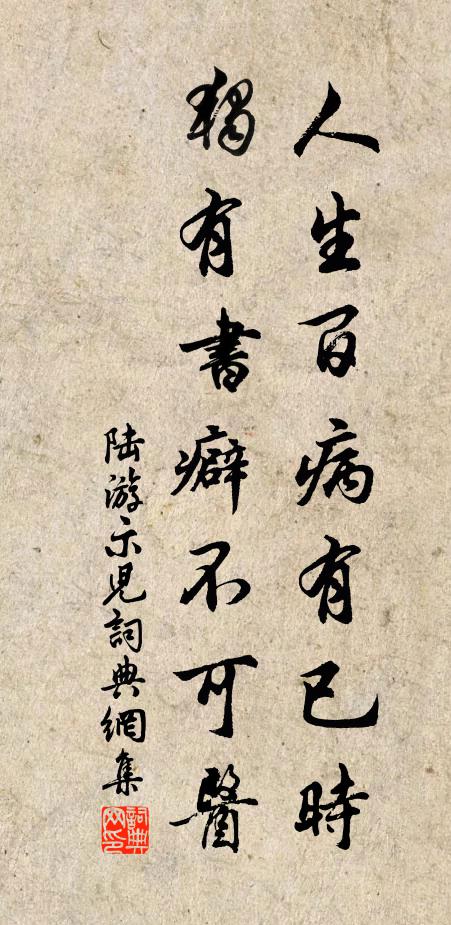 人生百病有已時
獨有書癖不可醫
陸游示児詞典網集
詞典網印